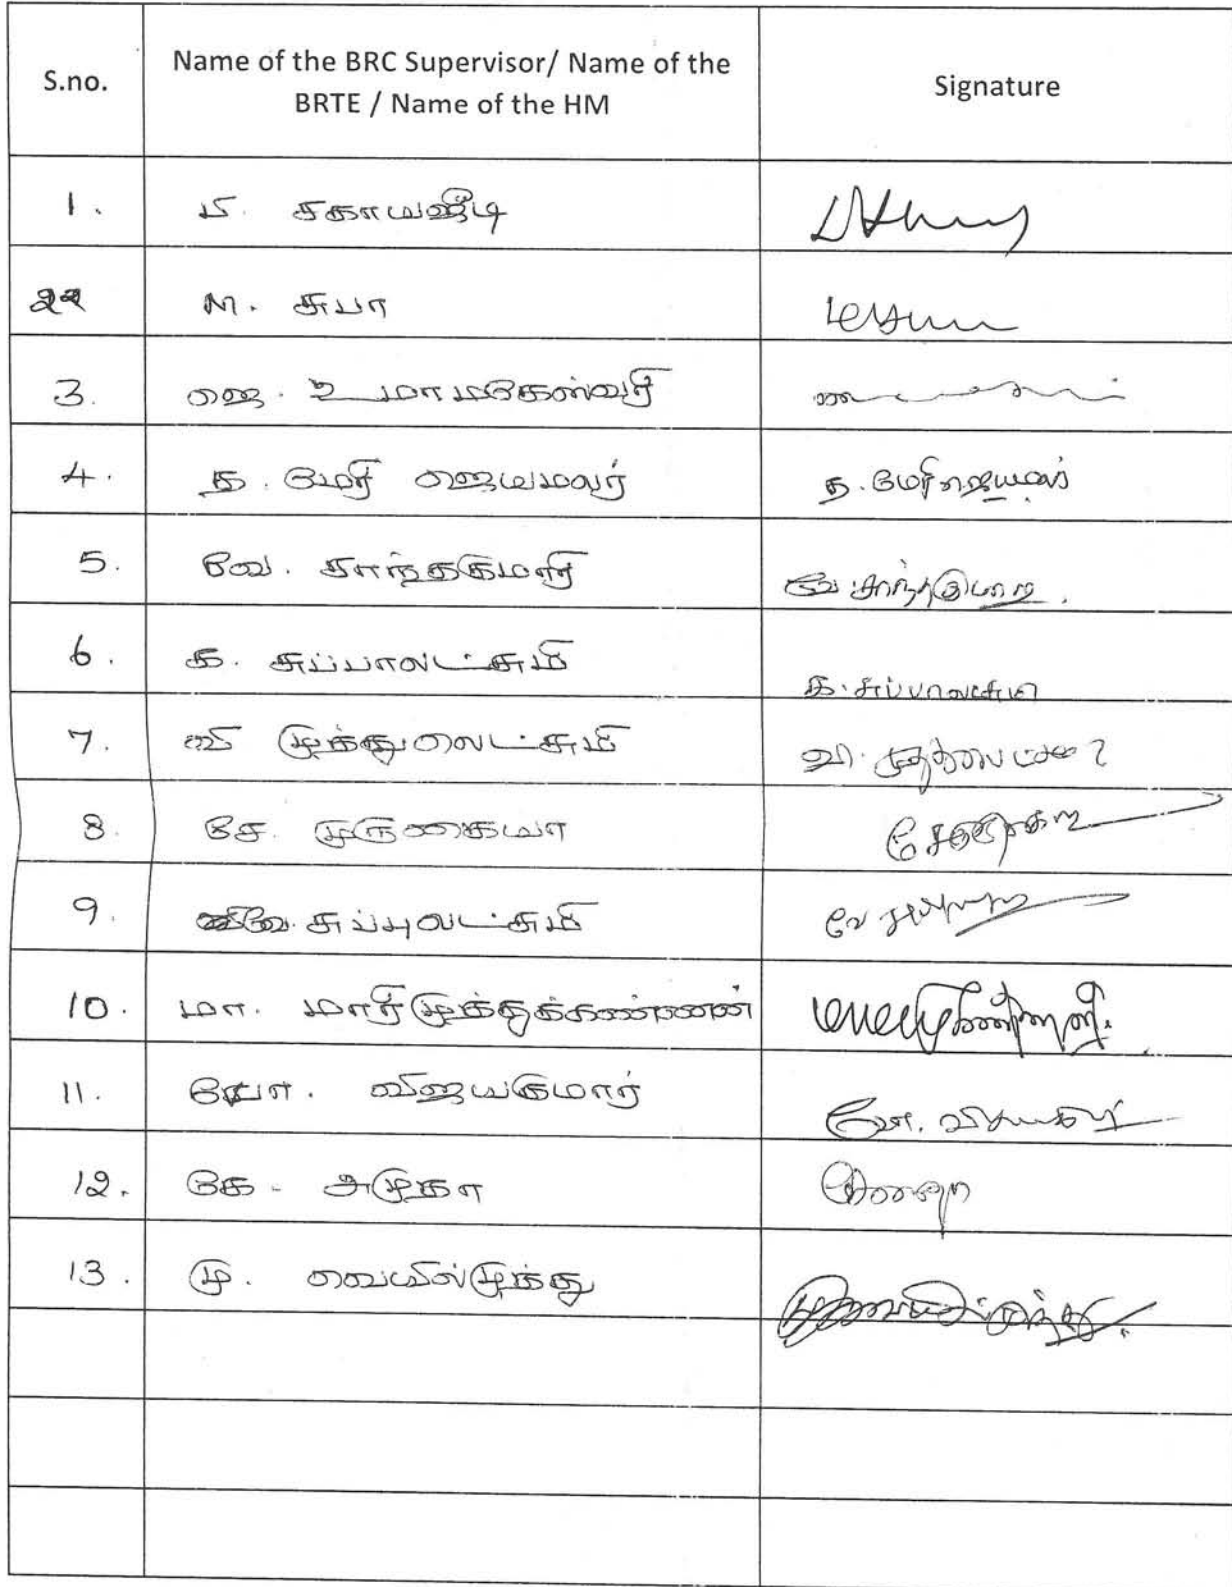 S.no.
Name of the BRC Supervisor/ Name of the
BRTE / Name of the HM
Signature
1. மி. சகாயஜூடி
2 M. சுபா
3. ஜெ. உமாமகேஸ்வரி
4. த. மேரி ஜெயமலர் த. மேரிஜெயமலர்
5. வே. சாந்தகுமாரி வே. சாந்தகுமாரி.
6. க. சுப்பாலட்சுமி க. சுப்பாலட்சுமி
7. வி முத்துலெட்சுமி
8. சே. முருகையா
9. வே. சுப்புலட்சுமி
10. மா. மாரிமுத்துக்கண்ணன்
11. யோ. விஜயகுமார்
12. கே. அமுதா
13. மு. வெயில்முத்து